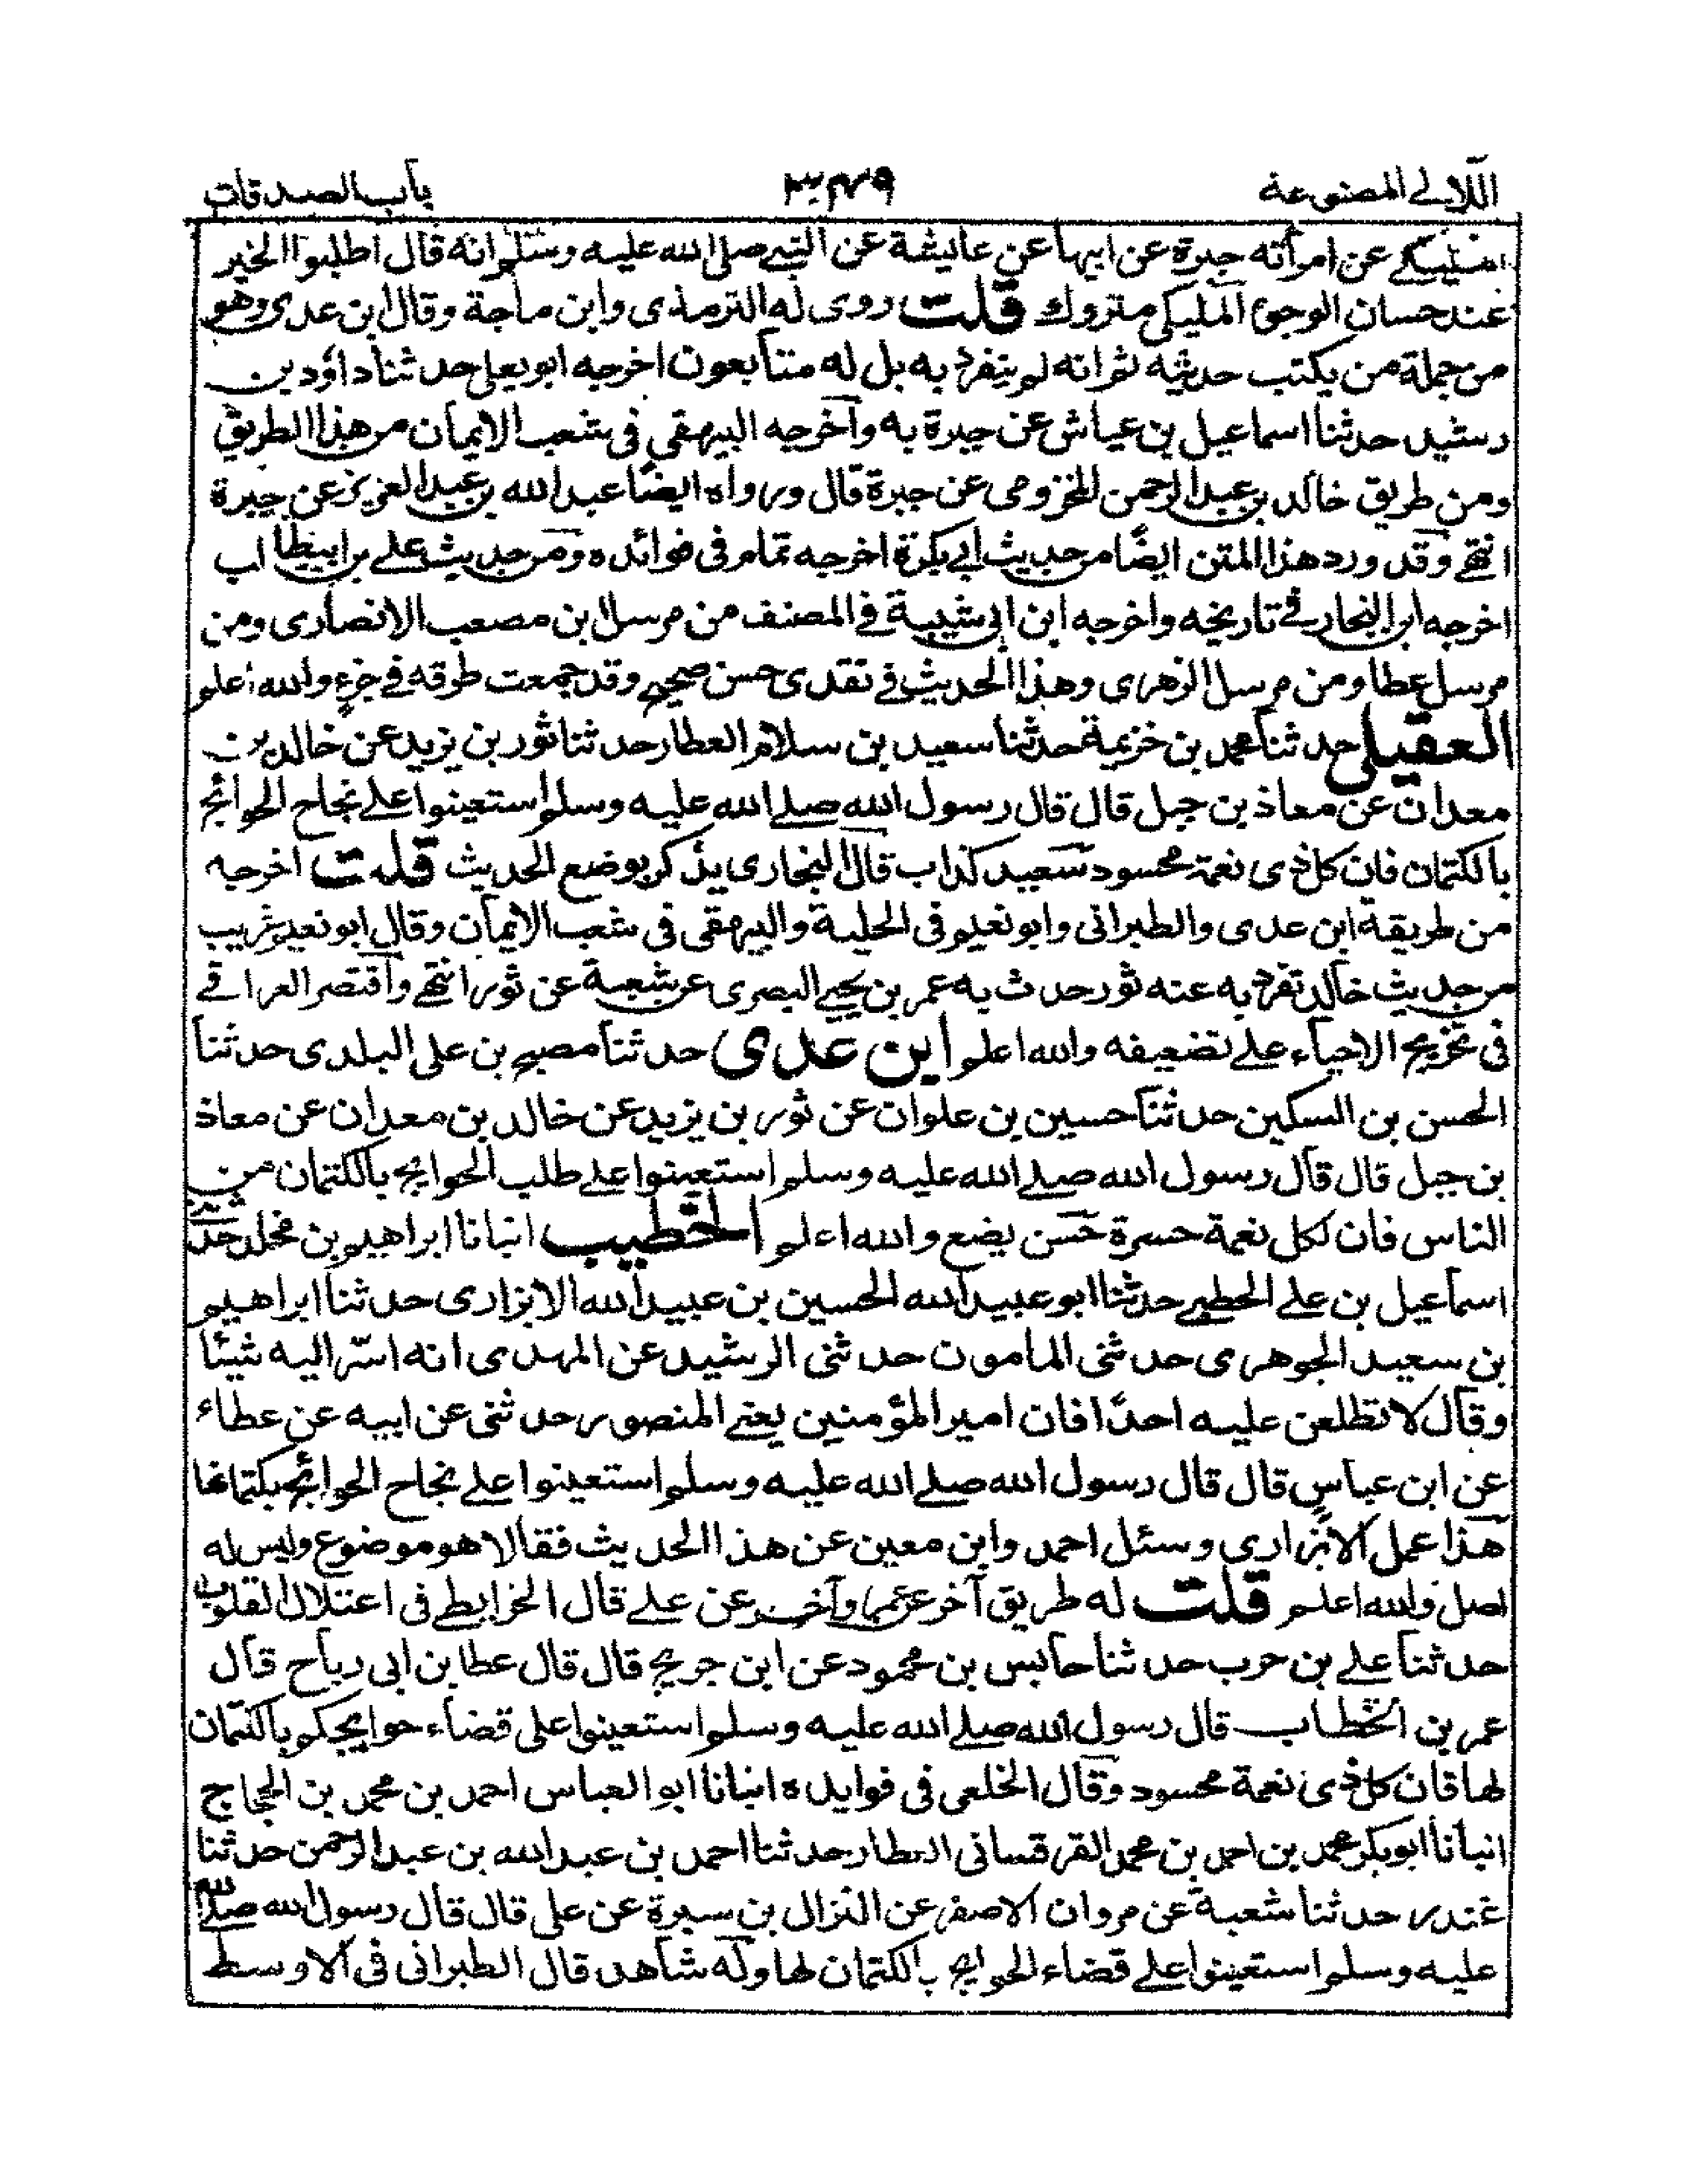 اللآلي المصنوعة
٣٤٩
باب الصدقات
المليكي عن امرأته جبرة عن ابيها عن عايشة عن النبي صلى الله عليه وسلم انه قال اطلبوا الخير
عند حسان الوجوه المليكي متروك قلت روى له الترمذى وابن ماجة وقال ابن عدى وهو
من جملة من يكتب حديثه ثم انه لم يتفرد به بل له متابعون اخرجه ابو يعلى حدثنا داؤد بن
رشيد حدثنا اسماعيل بن عياش عن جبرة به وآخرجه البيهقي في شعب الايمان من هذا الطريق
ومن طريق خالد بن عبد الرحمن المخزومى عن جبرة قال ورواه ايضًا عبد الله بن عبد العزيز عن جبرة
انتهى وقد ورد هذا المتن ايضًا من حديث ابي بكرة اخرجه تمام فى فوائده ومن حديث علي بن ابيطالب
اخرجه ابن النجار في تاريخه واخرجه ابن ابى شيبة في المصنف من مرسل ابن مصعب الانصارى ومن
مرسل عطا ومن مرسل الزهرى وهذا الحديث في نقدى حسن صحيح وقد جمعت طرقه في جزء والله اعلم
العقيلى حدثنا محمد بن خزيمة حدثنا سعيد بن سلام العطار حدثنا ثور بن يزيد عن خالد بن
معدان عن معاذ بن جبل قال قال رسول الله صلى الله عليه وسلم استعينوا على نجاح الحوائج
بالكتمان فان كل ذى نعمة محسود سعيد كذاب قال البخارى يذكر بوضع الحديث قلت اخرجه
من طريقه ابن عدى والطبرانى وابو نعيم فى الحلية والبيهقى فى شعب الايمان وقال ابو نعيم غريب
من حديث خالد تفرد به عنه ثور حدث به عمر بن يحيى البصرى عن شعبة عن ثور انتهى وآقتصر العراقي
فى تخريج الاحياء على تضعيفه والله اعلم ابن عدى حدثنا مصبح بن على البلدى حدثنا
الحسن بن السكين حدثنا حسين بن علوان عن ثور بن يزيد عن خالد بن معدان عن معاذ
بن جبل قال قال رسول الله صلى الله عليه وسلم استعينوا على طلب الحوايج بالكتمان من
الناس فان لكل نعمة حسرة حسن يضع والله اعلم الخطيب انبانا ابراهيم بن مخلد حدثنا
اسماعيل بن علي الخطبي حدثنا ابو عبيد الله الحسين بن عبيد الله الابزارى حدثنا ابراهيم
بن سعيد الجوهرى حدثنى المامون حدثنى الرشيد عن المهدى انه اسرّ اليه شيئا
وقال لا تطلعن عليه احدًا فان امير المؤمنين يعنى المنصور حدثنى عن ابيه عن عطاء
عن ابن عباس قال قال رسول الله صلى الله عليه وسلم استعينوا على نجاح الحوائج بكتمانها
هذا عمل الابزاري وسئل احمد وابن معين عن هذا الحديث فقالا هو موضوع وليس له
اصل والله اعلم قلت له طريق آخر عن عمر وآخر عن علي قال الخرايطي فى اعتلال القلوب
حدثنا علي بن حرب حدثنا حابس بن محمود عن ابن جريج قال قال عطا بن ابى رباح قال
عمر بن الخطاب قال رسول الله صلى الله عليه وسلم استعينوا على قضاء حوايجكم بالكتمان
لها فان كل ذى نعمة محسود وقال الخلعى فى فوايده انبانا ابو العباس احمد بن محمد بن الحجاج
انبانا ابو بكر محمد بن احمد بن محمد القرقسانى العطار حدثنا احمد بن عبد الله بن عبد الرحمن حدثنا
غندر حدثنا شعبة عن مروان الاصفر عن النزال بن سبرة عن على قال قال رسول الله صلى الله
عليه وسلم استعينوا على قضاء الحوايج بالكتمان لها وله شاهد قال الطبرانى فى الاوسط